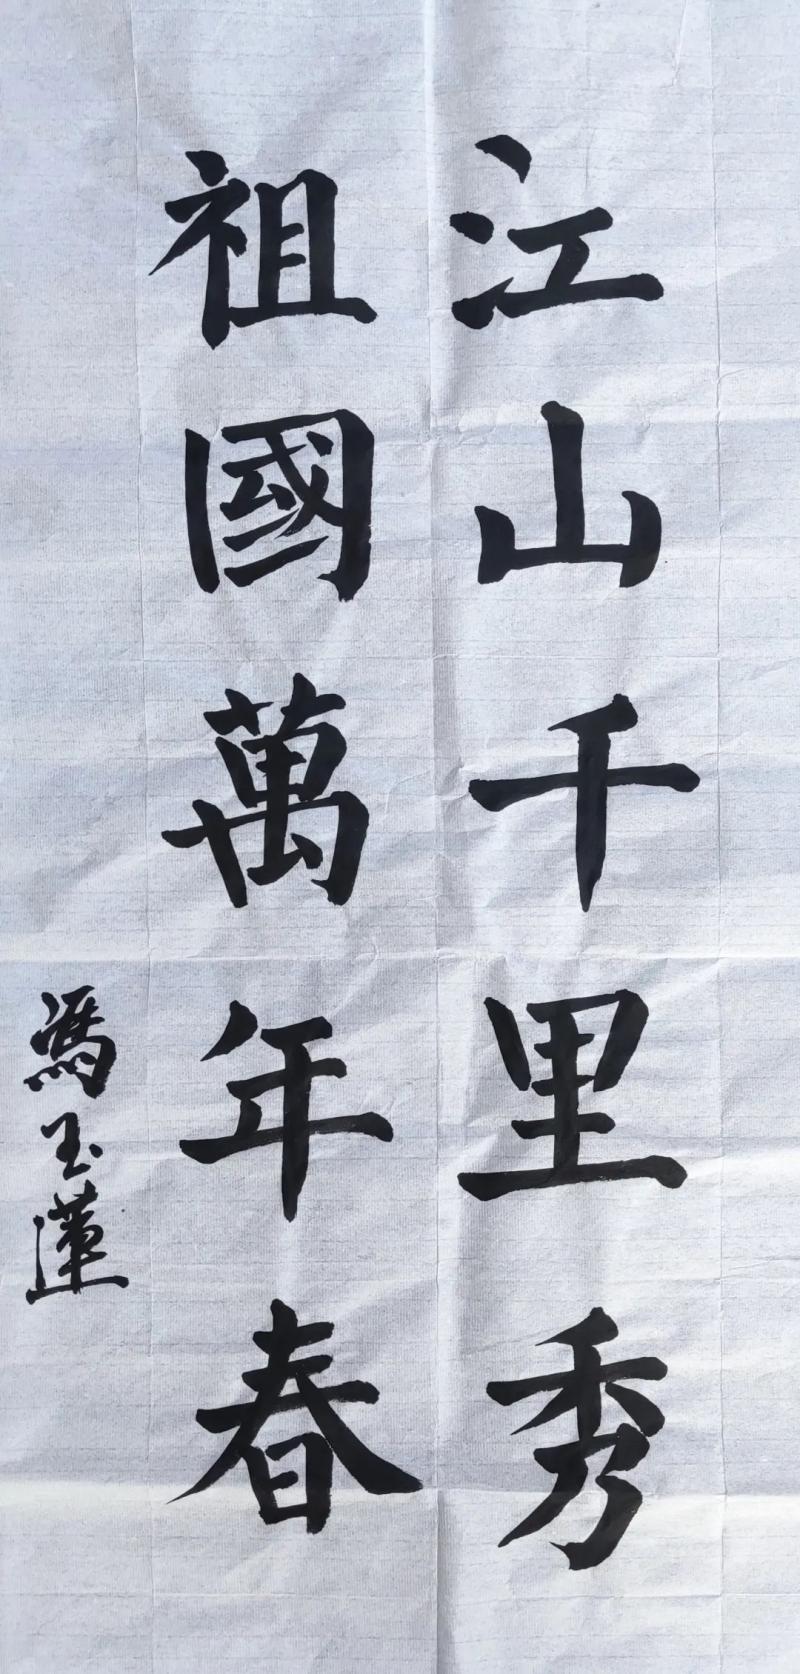 江山千里秀
祖國萬年春
馮玉蓮